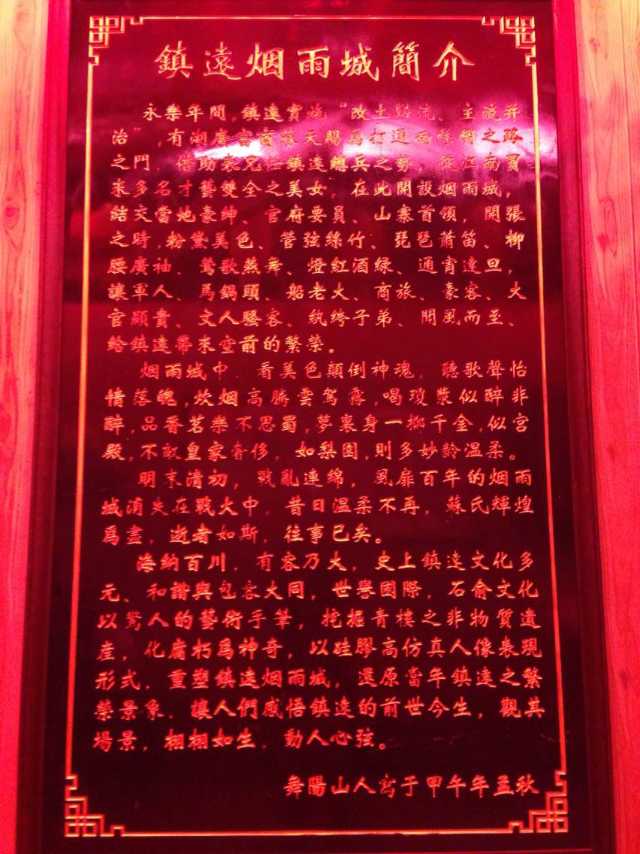 鎮遠烟雨城簡介
永樂年間，鎮遠實施“改土歸流、主流并
治”，有湖廣富商蘇天賜爲打通西
之門，借助表兄任鎮遠總兵之勢，從江南買
來多名才藝雙全之美女，在此開設烟雨城，
結交當地豪紳、官府要員、山寨首領，開張
之時，粉黛美色、管弦絲竹、琵琶簫笛、柳
腰廣袖、鶯歌燕舞、燈紅酒綠、通宵達旦，
讓軍人、馬鍋頭、船老大、商旅、豪客、大
官顯貴、文人騷客、紈绔子弟、聞風而至、
給鎮遠帶來空前的繁榮。
烟雨城中，看美色顛倒神魂，聽歌聲怡
情落魄，炊烟高勝雲駕霧，喝瓊漿似醉非
醉，品香茗樂不思蜀，夢裏身一擲千金，似宮
殿，不敵皇家奢侈，如梨園，則多妙齡溫柔。
明末清初，戰亂連綿，風靡百年的烟雨
城消失在戰火中，昔日溫柔不再，蘇氏輝煌
爲盡，逝者如斯，往事已矣。
海納百川，有容乃大，史上鎮遠文化多
元、和諧與包容大同，世譽國際，石俞文化
以驚人的藝術手筆，挖掘青樓之非物質遺
產，化腐朽爲神奇，以硅膠高仿真人像表現
形式，重塑鎮遠烟雨城，還原當年鎮遠之繁
榮景象，讓人們感悟鎮遠的前世今生，觀其
場景，栩栩如生，動人心弦。
舞陽山人寫于甲午年孟秋